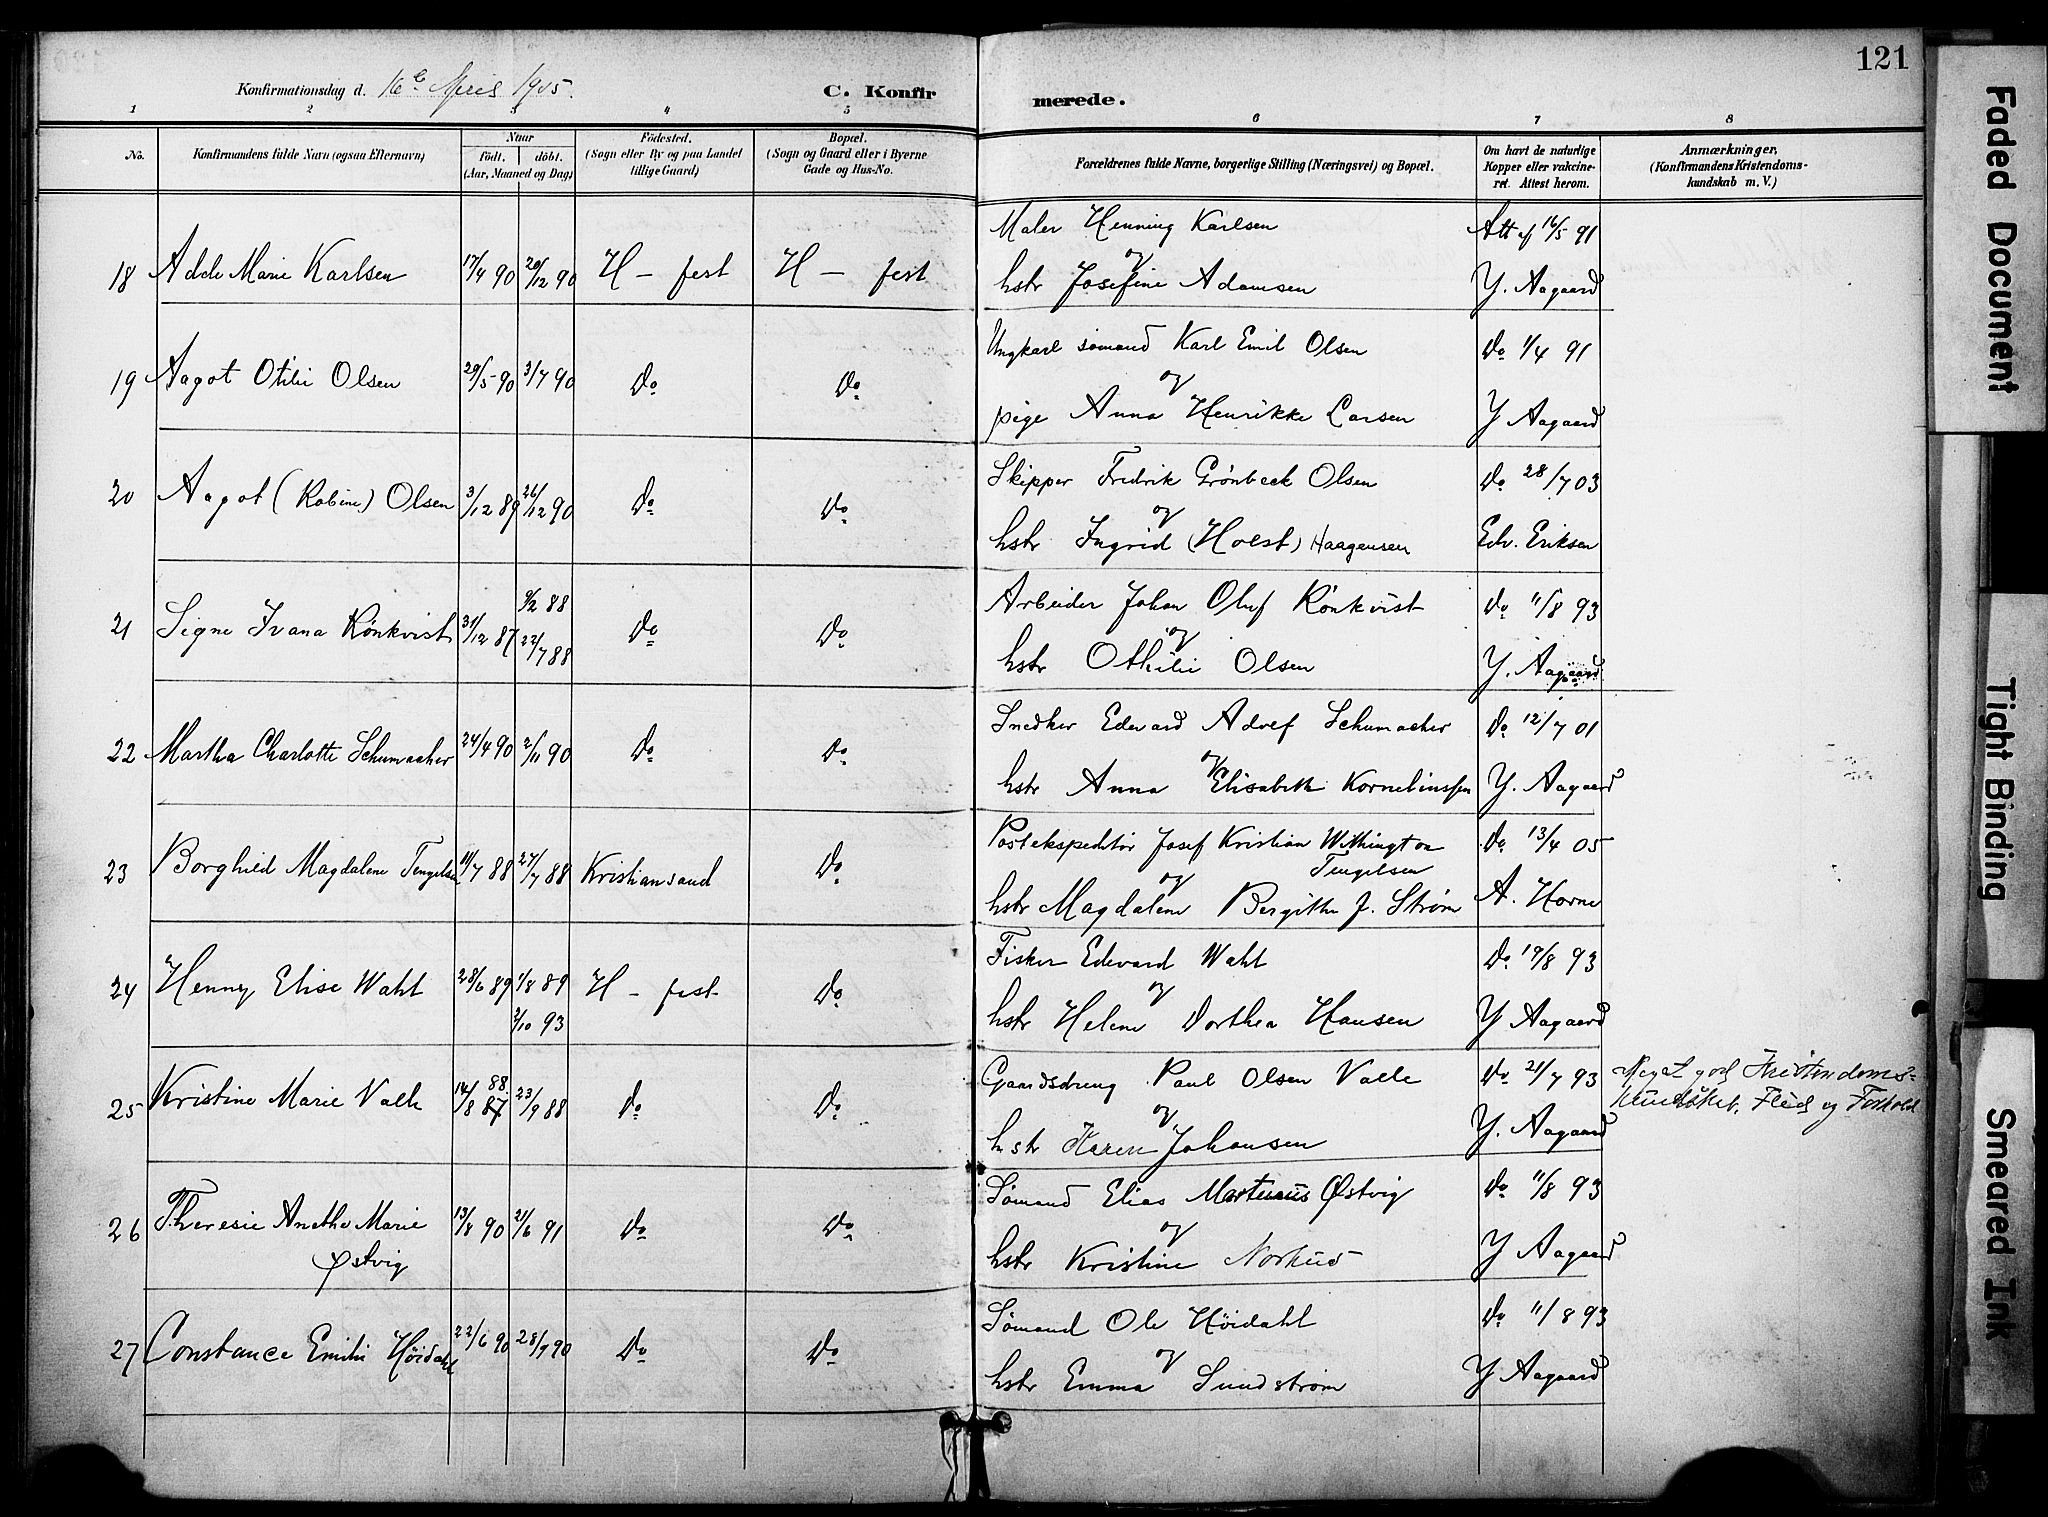 121
Konfirmationsdag d. 16de April 1905.
C. Konfirmerede.
1 2 3 4 5 6 7 8
No.
Konfirmandens fulde Navn (ogsaa Efternavn)
Naar
født. døbt.
(Aar, Maaned og Dag)
Fødested.
(Sogn eller By og paa Landet
tillige Gaard)
Bopæl.
(Sogn og Gaard eller i Byerne
Gade og Hus-No.
Forældrenes fulde Navne, borgerlige Stilling (Næringsvei) og Bopæl.
Om havt de naturlige
Kopper eller vakcine-
ret. Attest herom.
Anmærkninger,
(Konfirmandens Kristendoms-
kundskab m. V.)
18 Adele Marie Karlsen 17/4 90 20/12 90 H – fest H – fest
Maler Henning Karlsen
og
hstr Josefine Adamsen
Att af 16/5 91
Y. Aagaard
19 Aagot Otilie Olsen 29/5 90 3/7 90 Do Do
Ungkarl sømand Karl Emil Olsen
og
pige Anna Henrikke Larsen
Do 1/4 91
Y Aagaard
20 Aagot (Robine) Olsen 3/12 89 26/12 90 Do Do
Skipper Fredrik Grönbeck Olsen
og
hstr Ingrid (Holst) Haagensen
Do 28/7 03
Edv. Eriksen
21 Signe Ivana Rönkvist 31/12 87 9/2 88
22/7 88 Do Do
Arbeider Johan Oluf Rönkvist
og
hstr Othilie Olsen
Do 11/8 93
Y. Aagaard
22 Martha Charlotte Schumacher 24/4 90 2/11 90 Do Do
Snedker Edevard Adolf Schumacher
og
hstr Anna Elisabeth Korneliussen
Do 12/7 01
Y. Aagaard
23 Borghild Magdalene Tengelsen 11/7 88 27/7 88 Kristiansand Do
Postekspeditör Josef Kristian Withington
Tengelsen
og
hstr Magdalene Bergitte J. Strøm
Do 13/4 05
A. Horne
24 Henny Elise Wahl 28/6 89 1/8 89
2/10 93 H – fest Do
Fisker Edevard Wahl
og
hstr Helene Dorthea Hansen
Do 19/8 93
Y Aagaard
25 Kristine Marie Valle 14/8 87 88. 23/9 88 Do Do
Gaardsdreng Paul Olsen Valle
og
hstr Karen Johansen
Do 21/7 93
Y. Aagaard
Meget god Kristendoms-
kundskab, Flid og Forhold
26 Theresie Anethe Marie
Østvig 13/8 90 21/6 91 Do Do
Sømand Elias Martinius Østvig
og
hstr Kristine
Do 11/8 93
Y Aagaard
27 Constance Emilie Höidahl 22/6 90 28/9 90 Do Do
Sømand Ole Höidahl
og
hstr Emma Sundstrøm
Do 11/8 93
Y Aagaard
Faded Document
Tight Binding
Smeared Ink